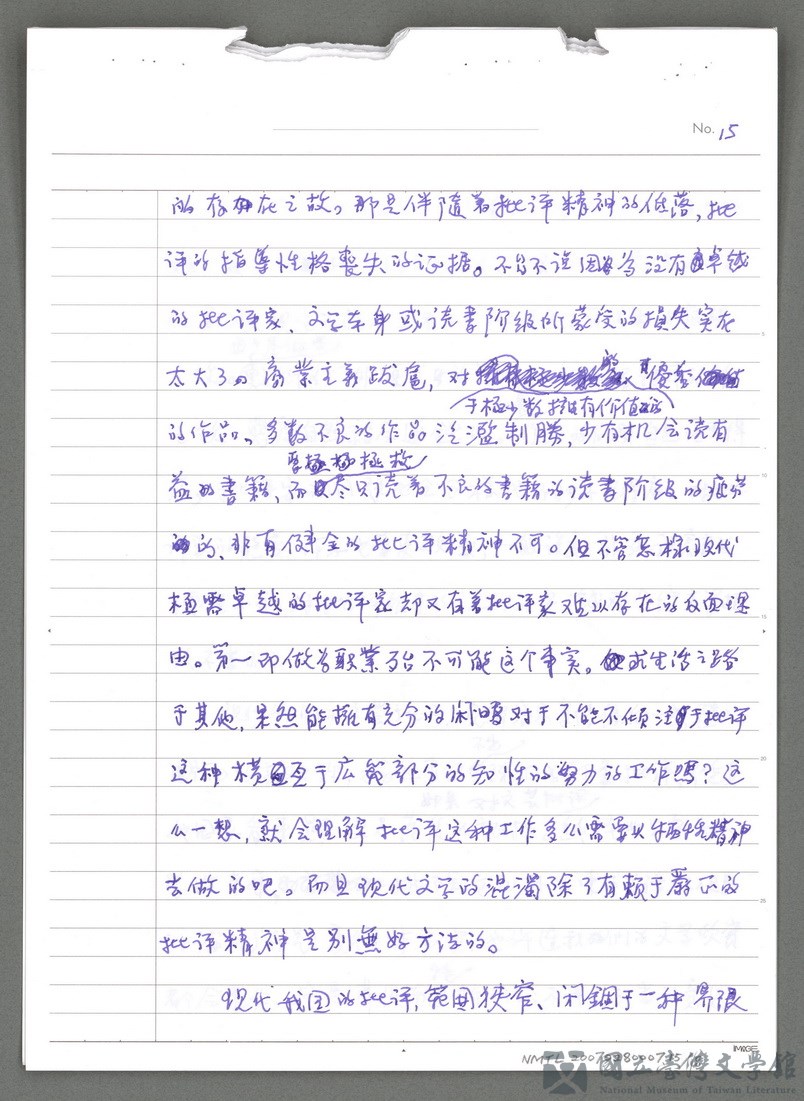 No. 15
的存在之故。那是伴隨着批评精神的低落,批
评的指导性格喪失的证据。不能不说因为没有卓越
的批评家、文学本身或读書阶级所蒙受的損失实在
太大了。商業主義跋扈,对 優秀
于极少数擁有价值
的作品、多数不良的作品泛濫制勝,少有机会读有
要拯救
益的書籍,而尽只读着不良的書籍的读書阶级的疲劳
的、非有健全的批评精神不可。但不管怎樣现代
极需卓越的批评家却又有着批评家难以存在的反面理
由。第一即做為职業殆不可能这个事实。求生活之路
于其他,果然能擁有充分的闲暇对于不能不倾注于批评
这种横亘于広範部分的知性的努力的工作嗎?这
么一想,就会理解批评这种工作多么需要以牺牲精神
去做的吧。而且现代文学的混濁除了有赖于嚴正的
批评精神是別無好方法的。
现代我国的批评,範囲狭窄、闭錮于一种界限
IMAGE
國立臺灣文學館
National Museum of Taiwan Literature